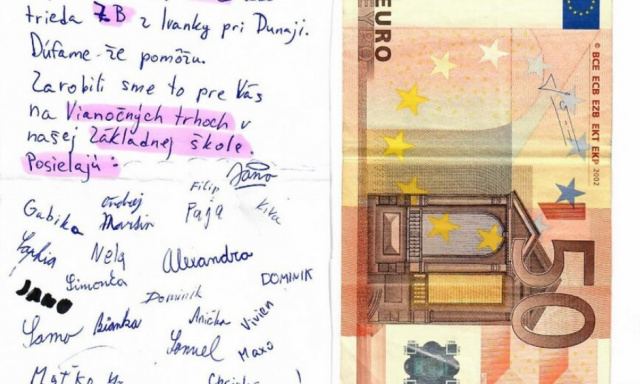 trieda ZB z Ivanky pri Dunaji.
Dúfame že pomôžu.
Zarobili sme to pre Vás
na Vianočných trhoch v
našej Základnej škole.
Posielajú:
Jano
Filip
Gabika Ondrej Paja Kika
Martin
Sophia Nela Alexandra
JANO Simonka DOMINIK
Dominik
Samo Bianka Anička Vivien
Samuel Maxo
Maťko
EURO
ΕΥΡΩ
© BCE ECB EZB EKT EKP 2002
50